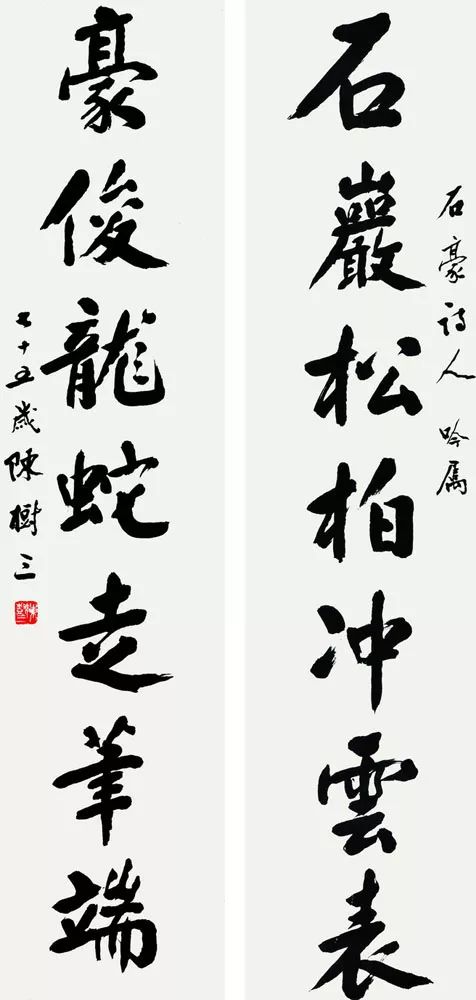 石巖松柏冲雲表
石豪詩人吟属
豪俊龍蛇走筆端
七十五歲陳樹三